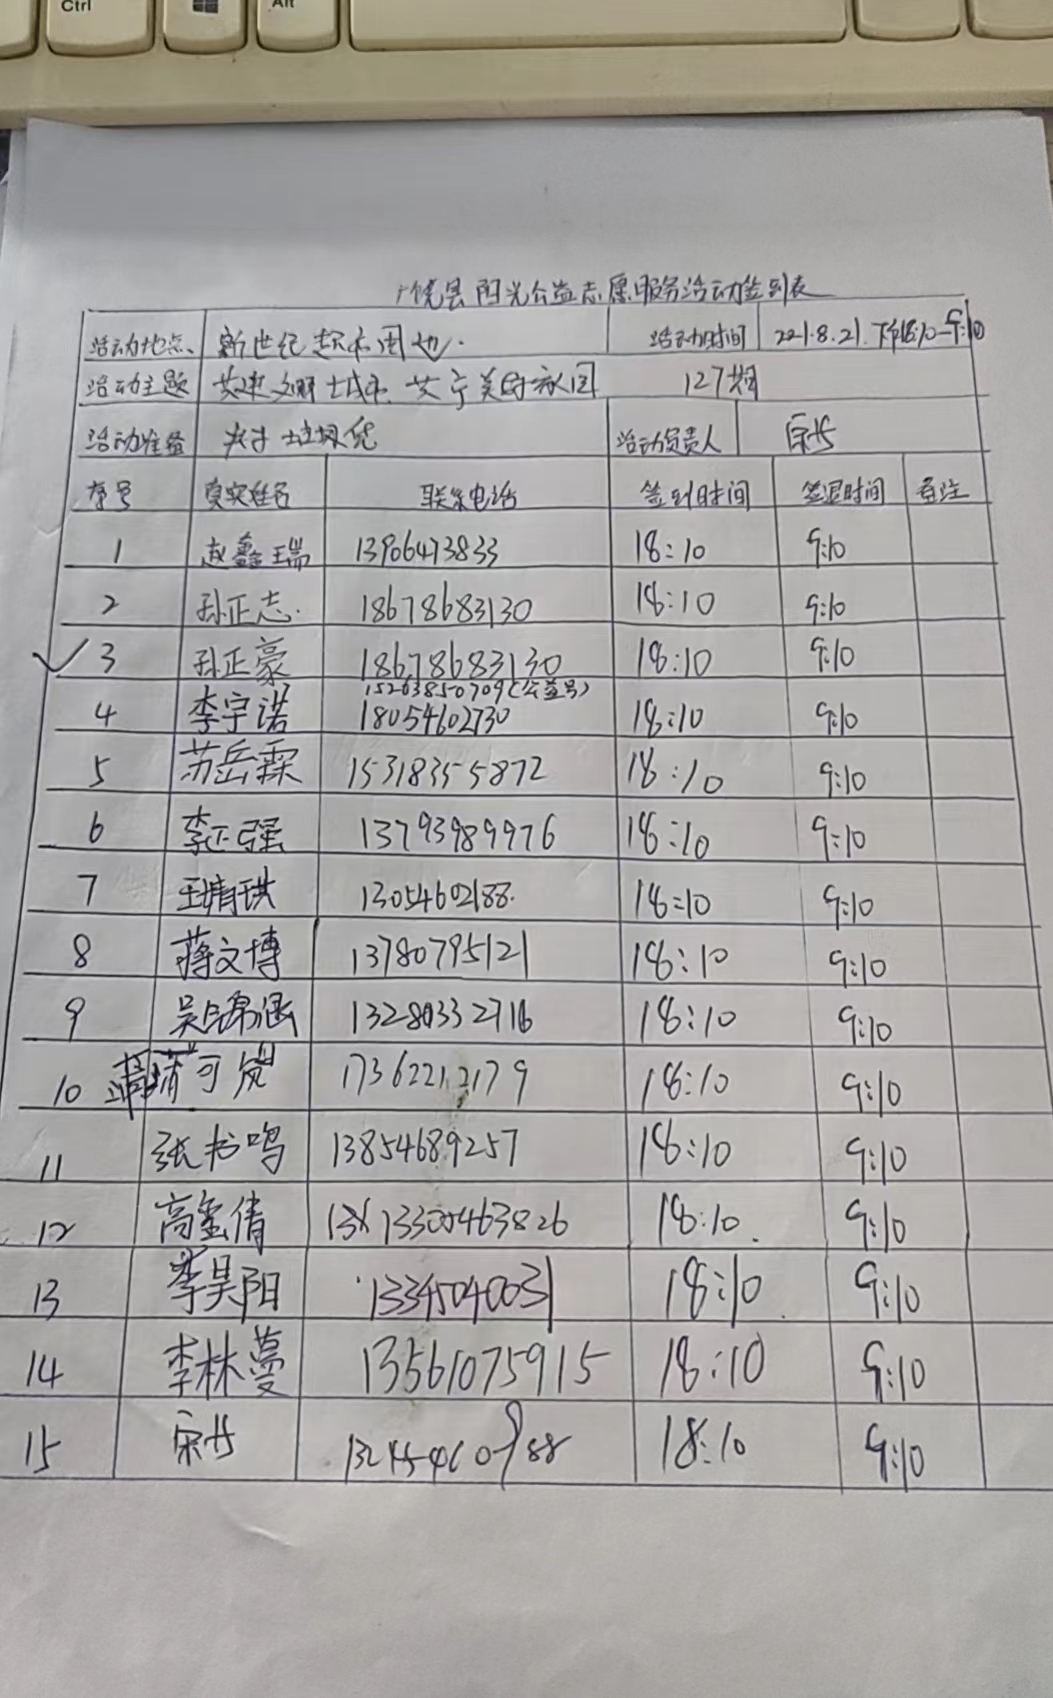 Ctrl
Alt
广饶县阳光公益志愿服务活动签到表
活动地点 新世纪 周边. 活动时间 221.8.21.下午6:10-9:10
活动主题 共建文明城市 共 美好家园 127期
活动准备 夹子 垃圾袋 活动负责人
序号 真实姓名 联系电话 签到时间 签退时间 备注
1 赵鑫瑞 13906473833 18:10 9:10
2 孙正志. 18678683130 18:10 9:10
3 孙正豪 18678683130 18:10 9:10
15263850709(公益号)
4 李宇诺 18054602730 18:10 9:10
5 苏岳霖 15318355872 18:10 9:10
6 李正强 13793989976 18:10 9:10
7 王婧琪 13054602188. 18:10 9:10
8 蒋文博 13780795121 18:10 9:10
9 吴锦涵 18:10 9:10
10 蒲可 17362212179 18:10 9:10
11 张书鸣 13854689257 18:10 9:10
12 高金倩 13305463826 18:10. 9:10
13 李昊阳 13345040031 18:10 9:10
14 李林蔓 13561075915 18:10 9:10
15 18:10 9:10